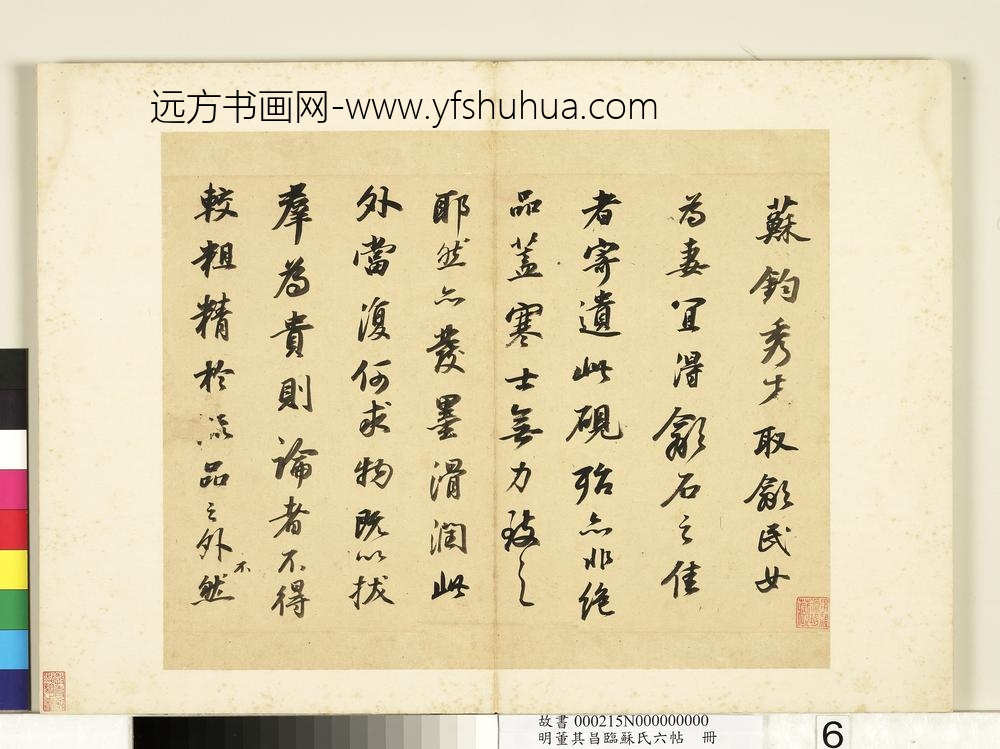 远方书画网-www.yfshuhua.com
蘇鈞秀才取歙民女
為妻宜得歙石之佳
者寄遺此硯殆亦非絶
品蓋寒士無力致之
耶然亦發墨滑潤此
外當復何求物既以拔
羣為貴則論者不得
較粗精於流品之外然
不
故書 000215N000000000
明董其昌臨蘇氏六帖 冊
6